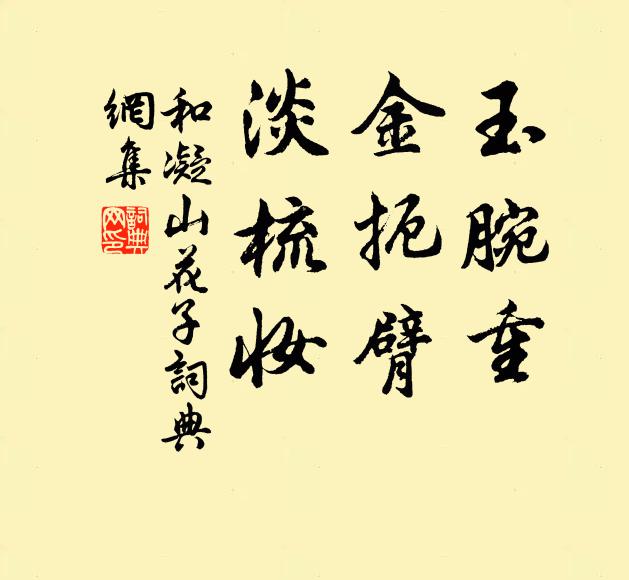 玉腕重
金扼臂
淡梳妆
和凝山花子詞典
網集
詞典
网印